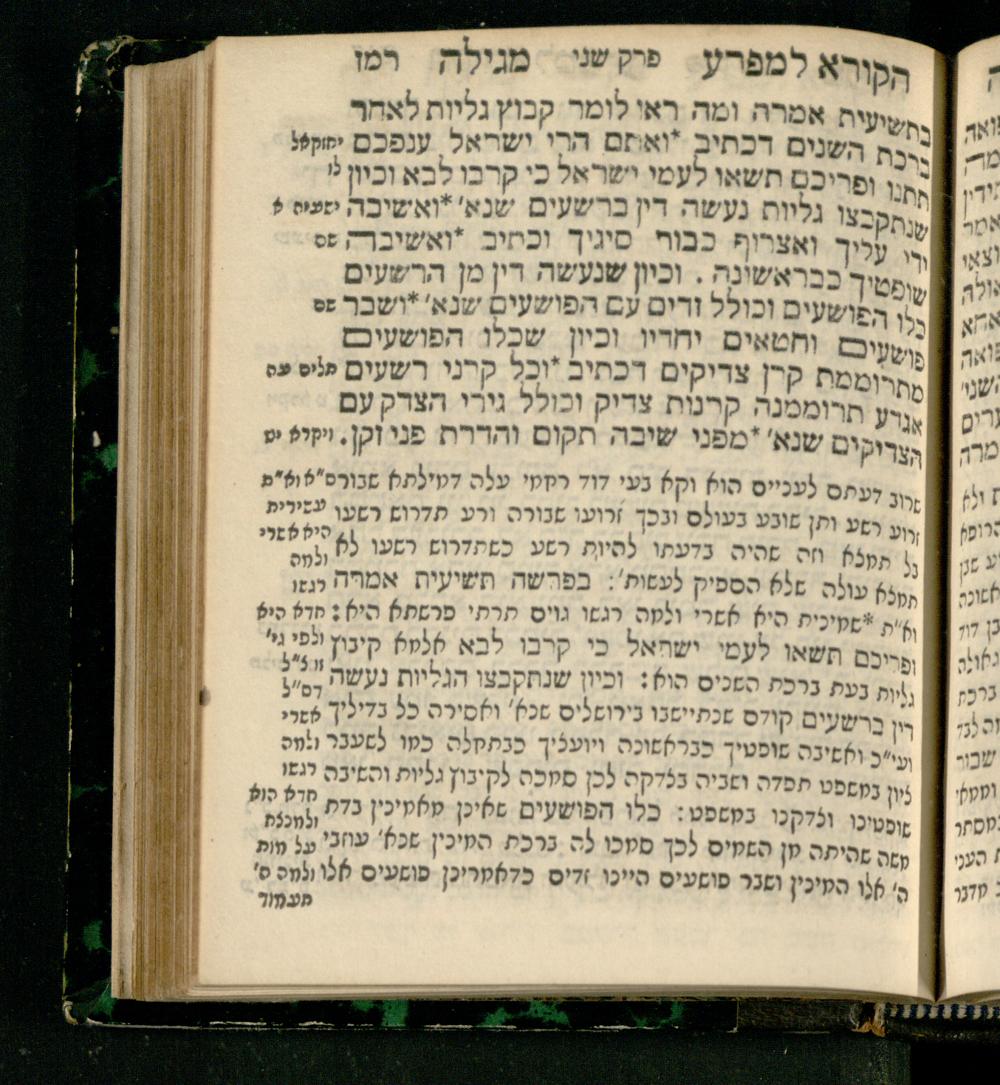 הקורא למפרע פרק שני מגילה רמז
בתשיעית אמרה ומה ראו לומר קבוץ גליות לאחר
ברכת השנים דכתיב *ואתם הרי ישראל ענפכם יחזקאל
תתנו ופריכם תשאו לעמי ישראל כי קרבו לבא וכיון לו
שנתקבצו גליות נעשה דין ברשעים שנא' *ואשיבה ישעיה א
ידי עליך ואצרוף כבור סיגיך וכתיב *ואשיבה שם
שופטיך כבראשונה . וכיון שנעשה דין מן הרשעים
כלו הפושעים וכולל זדים עם הפושעים שנא' *ושבר שם
פושעים וחטאים יחדיו וכיון שכלו הפושעים
מתרוממת קרן צדיקים דכתיב *וכל קרני רשעים תלים עה
אגדע תרוממנה קרנות צדיק וכולל גירי הצדק עם
הצדיקים שנא' *מפני שיבה תקום והדרת פני זקן. ויקרא יט
שרוב דעתם לעניים הוא וקא בעי דוד רחמי עלה דמילתא שבורס"א וא"ת
זרוע רשע ותן שובע בעולם ובכך זרועו שבורה ורע תדרוש רשעו עשירית
בל תמצא וזה שהיה בדעתו להיות רשע כשתדרוש רשעו לא היא אשרי
תמצא עולה שלא הספיק לעשות': בפרשה תשיעית אמרה ולמה רגשו
וא"ת *שמינית היא אשרי ולמה רגשו גוים תרתי פרשתא היא: חדא היא
ופריכם תשאו לעמי ישראל כי קרבו לבא אלמא קיבוץ ולפי גי'
גליות בעת ברכת השנים הוא: וכיון שנתקבצו הגליות נעשה זו צ"ל
דין ברשעים קודם שנתיישבו בירושלים שנא' ואסירה כל בדיליך דס"ל אשרי
ועי"כ ואשיבה שופטיך כבראשונה ויועציך כבתחלה כמו לשעבר ולמה
ציון במשפט תפדה ושביה בצדקה לכן סמכה לקיבוץ גליות והשיבה רגשו
שופטינו וצדקנו במשפט: כלו הפושעים שאינן מאמינין בדת חדא הוא ולמנצח
משה שהיתה מן השמים לכך סמכו לה ברכת המינין שנא' עוזבי על מות
ה' אלו המינין ושבר פושעים היינו זדים כדאמרינן פושעים אלו ולמה ה'
תעמוד